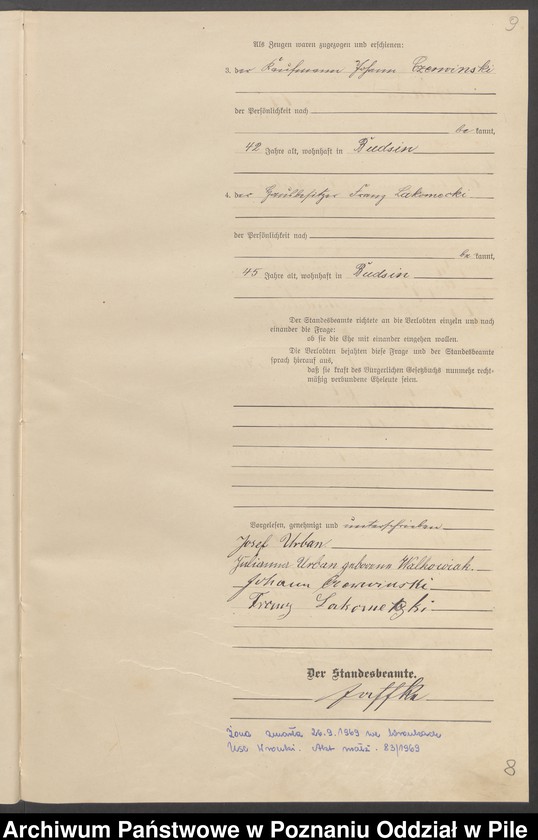 9
Als Zeugen waren zugezogen und erschienen:
3. der Kaufmann Johann Czerwinski
der Persönlichkeit nach
be kannt,
42 Jahre alt, wohnhaft in Budsin
4. der Franz Lakomecki
der Persönlichkeit nach
be kannt,
45 Jahre alt, wohnhaft in Budsin
Der Standesbeamte richtete an die Verlobten einzeln und nach
einander die Frage:
ob sie die Ehe mit einander eingehen wollen.
Die Verlobten bejahten diese Frage und der Standesbeamte
sprach hierauf aus,
daß sie kraft des Bürgerlichen Gesetzbuchs nunmehr recht-
mäßig verbundene Eheleute seien.
Vorgelesen, genehmigt und unterschrieben
Josef Urban
Julianna Urban geborene Walkowiak.
Johann Czerwinski
Franz
Der Standesbeamte.
Jaffke
Żona zmarła 26.9.1969 we
Usc Wronki. Akt 83/1969
8
Archiwum Państwowe w Poznaniu Oddział w Pile